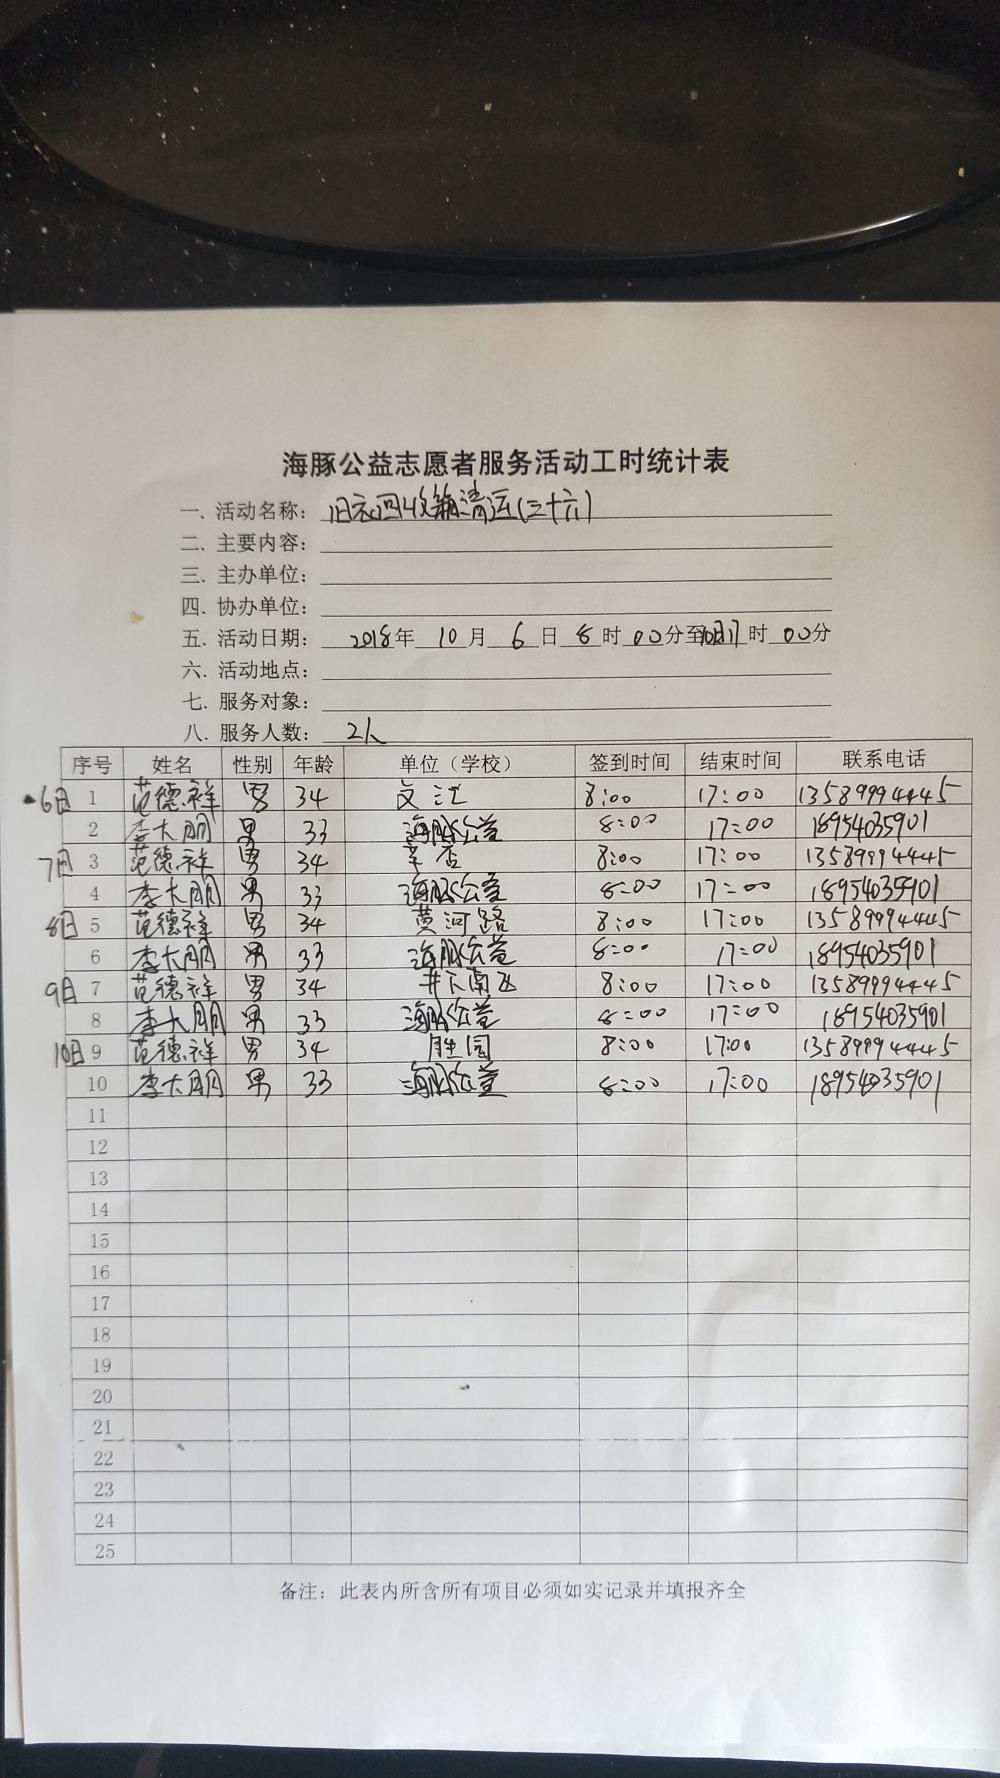 海豚公益志愿者服务活动工时统计表
一. 活动名称： 旧衣回收箱清运(三十六)
二. 主要内容：
三. 主办单位：
四. 协办单位：
五. 活动日期： 2018年 10月 6日 8时 00分至10日17时 00分
六. 活动地点：
七. 服务对象：
八. 服务人数： 2人
序号 姓名 性别 年龄 单位（学校） 签到时间 结束时间 联系电话
6日 1 范德祥 男 34 文汇 8:00 17:00 13589994445
2 李大朋 男 33 海豚公益 8:00 17:00 18954035901
7日 3 范德祥 男 34 8:00 17:00 13589994445
4 李大朋 男 33 海豚公益 8:00 17:00 18954035901
8日 5 范德祥 男 34 黄河路 8:00 17:00 13589994445
6 李大朋 男 33 海豚公益 8:00 17:00 18954035901
9日 7 范德祥 男 34 井下南区 8:00 17:00 13589994445
8 李大朋 男 33 海豚公益 8:00 17:00 18954035901
10日 9 范德祥 男 34 胜园 8:00 17:00 13589994445
10 李大朋 男 33 海豚公益 8:00 17:00 18954035901
11
12
13
14
15
16
17
18
19
20
21
22
23
24
25
备注：此表内所含所有项目必须如实记录并填报齐全